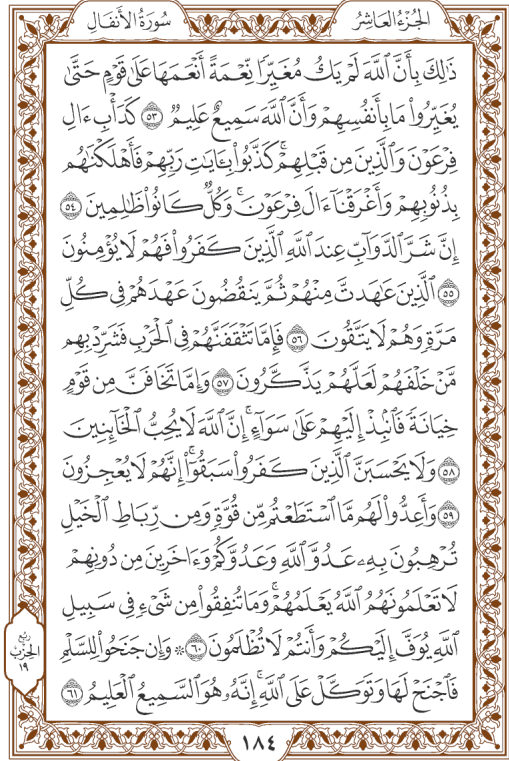 الجزء العاشر
سورة الأنفال
ذَٰلِكَ بِأَنَّ ٱللَّهَ لَمْ يَكُ مُغَيِّرًا نِّعْمَةً أَنْعَمَهَا عَلَىٰ قَوْمٍ حَتَّىٰ
يُغَيِّرُوا۟ مَا بِأَنفُسِهِمْ وَأَنَّ ٱللَّهَ سَمِيعٌ عَلِيمٌ ٥٣ كَدَأْبِ ءَالِ
فِرْعَوْنَ وَٱلَّذِينَ مِن قَبْلِهِمْ ۚ كَذَّبُوا۟ بِـَٔايَٰتِ رَبِّهِمْ فَأَهْلَكْنَٰهُم
بِذُنُوبِهِمْ وَأَغْرَقْنَآ ءَالَ فِرْعَوْنَ ۚ وَكُلٌّ كَانُوا۟ ظَٰلِمِينَ ٥٤
إِنَّ شَرَّ ٱلدَّوَآبِّ عِندَ ٱللَّهِ ٱلَّذِينَ كَفَرُوا۟ فَهُمْ لَا يُؤْمِنُونَ
٥٥ ٱلَّذِينَ عَٰهَدتَّ مِنْهُمْ ثُمَّ يَنقُضُونَ عَهْدَهُمْ فِى كُلِّ
مَرَّةٍ وَهُمْ لَا يَتَّقُونَ ٥٦ فَإِمَّا تَثْقَفَنَّهُمْ فِى ٱلْحَرْبِ فَشَرِّدْ بِهِم
مَّنْ خَلْفَهُمْ لَعَلَّهُمْ يَذَّكَّرُونَ ٥٧ وَإِمَّا تَخَافَنَّ مِن قَوْمٍ
خِيَانَةً فَٱنۢبِذْ إِلَيْهِمْ عَلَىٰ سَوَآءٍ ۚ إِنَّ ٱللَّهَ لَا يُحِبُّ ٱلْخَآئِنِينَ
٥٨ وَلَا يَحْسَبَنَّ ٱلَّذِينَ كَفَرُوا۟ سَبَقُوٓا۟ ۚ إِنَّهُمْ لَا يُعْجِزُونَ
٥٩ وَأَعِدُّوا۟ لَهُم مَّا ٱسْتَطَعْتُم مِّن قُوَّةٍ وَمِن رِّبَاطِ ٱلْخَيْلِ
تُرْهِبُونَ بِهِۦ عَدُوَّ ٱللَّهِ وَعَدُوَّكُمْ وَءَاخَرِينَ مِن دُونِهِمْ
لَا تَعْلَمُونَهُمُ ٱللَّهُ يَعْلَمُهُمْ ۚ وَمَا تُنفِقُوا۟ مِن شَىْءٍ فِى سَبِيلِ
ٱللَّهِ يُوَفَّ إِلَيْكُمْ وَأَنتُمْ لَا تُظْلَمُونَ ٦٠ ۞ وَإِن جَنَحُوا۟ لِلسَّلْمِ
فَٱجْنَحْ لَهَا وَتَوَكَّلْ عَلَى ٱللَّهِ ۚ إِنَّهُۥ هُوَ ٱلسَّمِيعُ ٱلْعَلِيمُ ٦١
ربع
الحزب
١٩
١٨٤